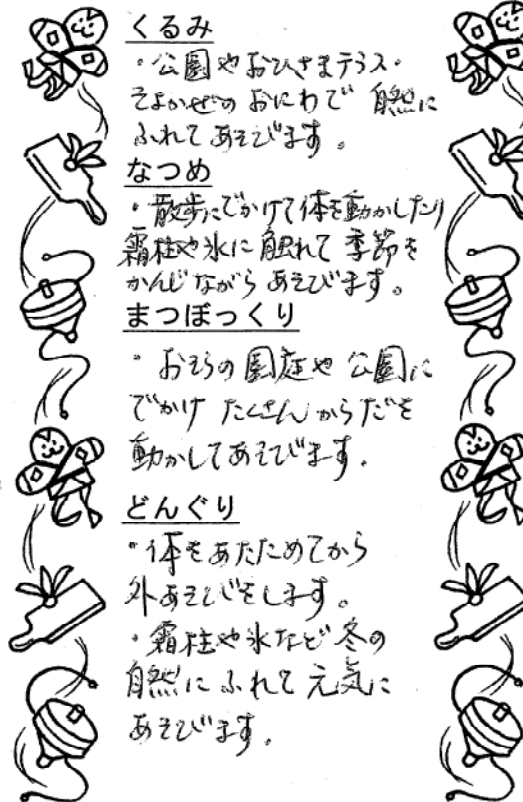 くるみ
・公園やおひさまテラス・
そよかぜのおにわで 自然に
ふれてあそびます。
なつめ
・散歩にでかけて体を動かしたり
霜柱や氷に触れて 季節を
かんじながら あそびます。
まつぼっくり
・おそらの園庭や 公園に
でかけ たくさん からだを
動かしてあそびます。
どんぐり
・体をあたためてから
外あそびをします。
・霜柱や氷など 冬の
自然に ふれて 元気に
あそびます。